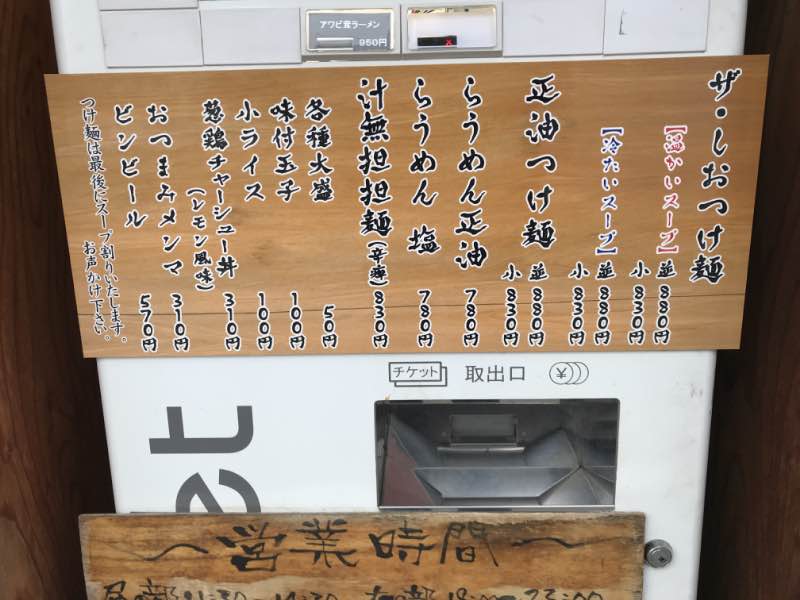 アワビ茸ラーメン
950円
ザ・しおつけ麺
【温かいスープ】
並 880円
小 830円
【冷たいスープ】
並 880円
小 830円
正油つけ麺
並 880円
小 830円
らうめん正油 780円
らうめん 塩 780円
汁無担担麺(辛痺) 830円
各種大盛 50円
味付玉子 100円
小ライス 100円
葱鶏チャーシュー丼
(レモン風味) 310円
おつまみメンマ 310円
ビンビール 570円
つけ麺は最後にスープ割りいたします。
お声かけ下さい。
チケット 取出口 ¥
et
～営業時間～